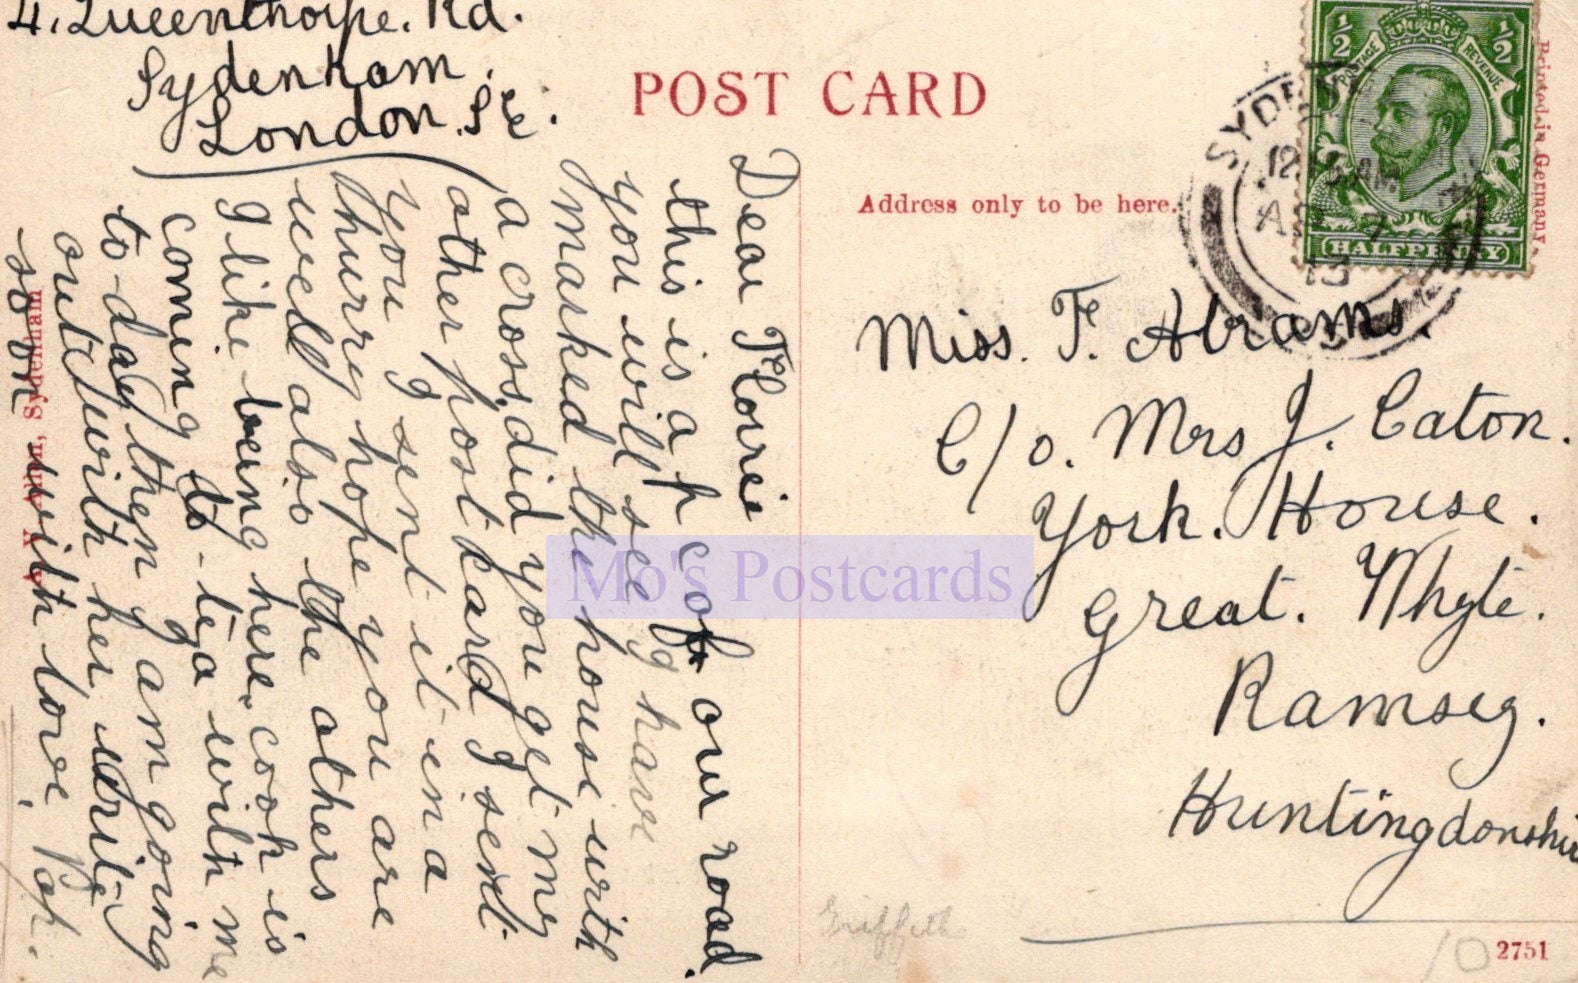 4. Queenthorpe. Rd.
Sydenham.
London. S.E.
Dear Florrie
this is a p c of our road.
you will see I have
marked the house with
a cross, did you get my
other post card I sent
you I sent it in a
hurry hope you are
well also the others
I like being here. cook is
coming to-tea with me
to-day then I am going
out with her write
soon with love. Pop.
POST CARD
Address only to be here.
Printed in Germany
½ ½
POSTAGE REVENUE
HALFPENNY
SYDEN
12 15 AM
AP 7
13
Miss. F. Abrams.
C/o. Mrs J. Caton.
York. House.
Great. Whyte.
Ramsey.
Huntingdonshire
Sydenham
Mo's Postcards
Griffeth
10
2751